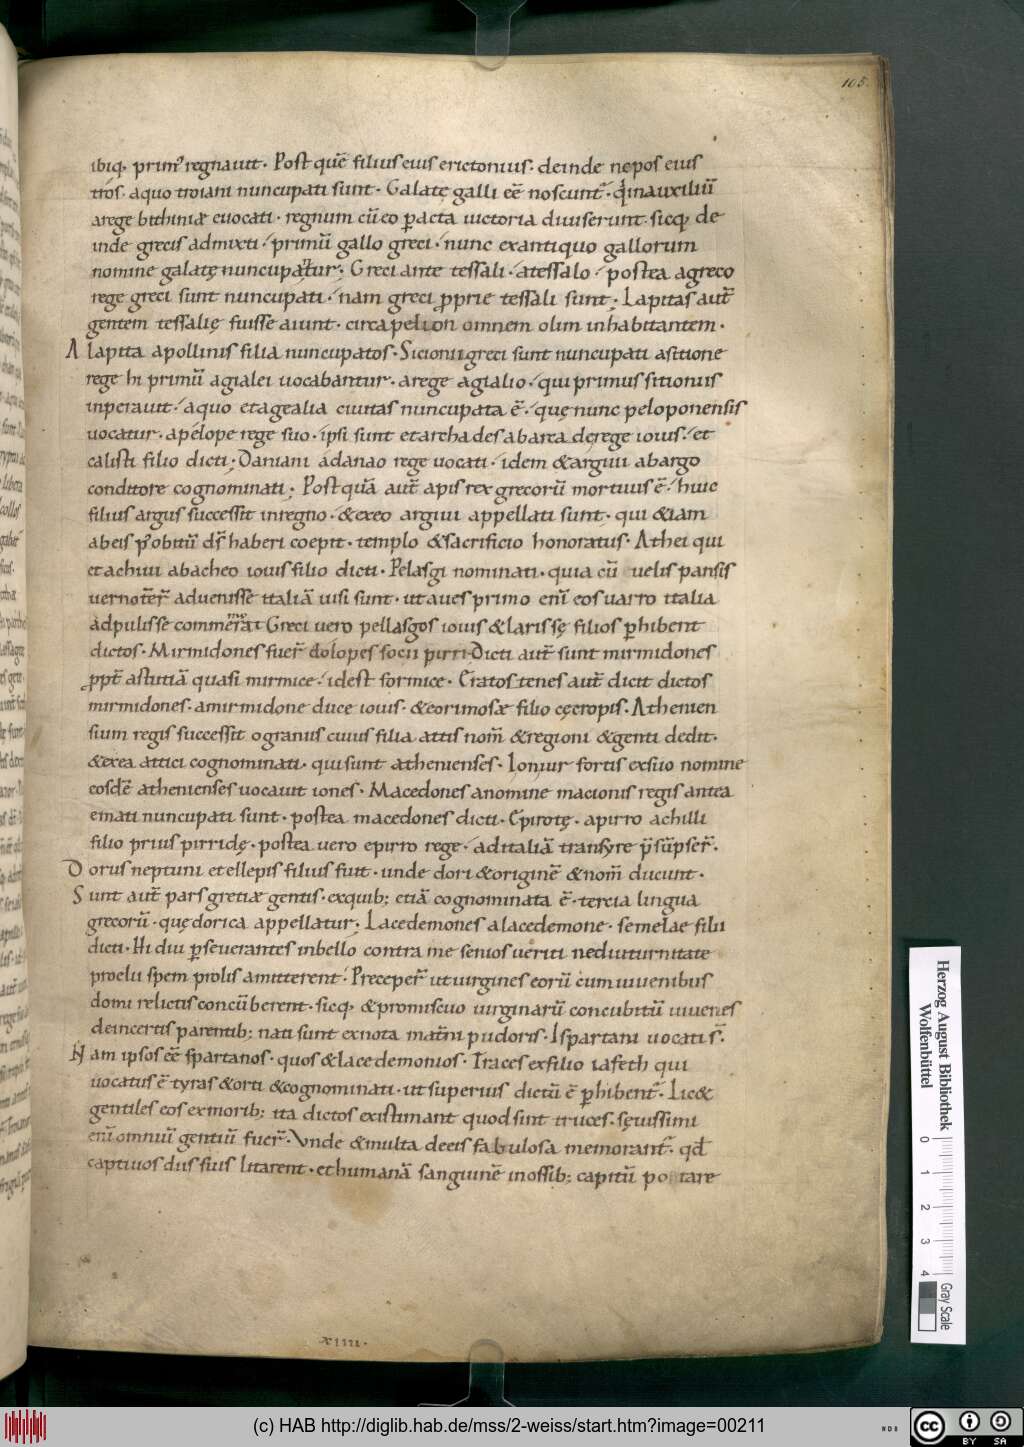 105.
ibiq; prim᾽ regnauit. Post quē filius eius erictonius. deinde nepos eius
tros. aquo troiani nuncupati sunt. Galatę galli eē noscunt᷑. qi inauxiliū
arege bithiniæ euocati. regnum cū eo ꝑacta uictoria diuiserunt. sicq; de
inde grecis admixti. primū gallo greci. nunc exantiquo gallorum
nomine galatę nuncupatur. Greci ante tessali. atessalo. postea agreco
rege greci sunt nuncupati. nam greci ꝓprie tessali sunt. Lapitas aut̄
gentem tessalię fuisse aiunt. circa pelion omnem olim inhabitantem.
A lapita apollinis filia nuncupatos. Sicionii greci sunt nuncupati asitione
rege hi primū agialei uocabantur. arege agialio. qui primus sitioniis
inperauit. aquo etagealia ciuitas nuncupata ē. quę nunc peloponensis
uocatur. apelope rege suo. ipsi sunt etarchades abarca de rege iouis. et
calisti filio dicti. Daniani adanao rege uocati. idem &argiui abargo
conditore cognominati. Post quā aut̄ apis rex grecorū mortuus ē. huic
filius argus successit inregno. &exeo argiui appellati sunt. qui &iam
abeis p᾽obitū ds̄ haberi coepit. templo &sacrificio honoratus. Athei qui
etachiui abacheo iouis filio dicti. Pelasgi nominati. quia cū uelis pansis
uerno tēr̄ aduenisse italiā uisi sunt. ut aues primo enī eos uarro italia
adpulisse commerat Greci uero pellasgos iouis &larissę filios ꝑhibent
dictos. Mirmidones fuer̄ dolopes socii pirri. Dicti aut̄ sunt mirmidones
ꝓpt̄ astutiā quasi mirmice. idest formice. Eratostenes aut̄ dicit dictos
mirmidones. amirmidone duce iouis. &eorimosæ filio cęcropis. Athenien
sium regis successit ogranus cuius filia attis nom̄ &regioni &genti dedit.
&exea attici cognominati. qui sunt athenienses. Ioniur fortis exsuo nomine
eosdē athenienses uocauit iones. Macedones anomine macionis regis antea
emati nuncupati sunt. postea macedones dicti. Epirotę. apirro achilli
filio prius pirridę. postea uero epirro rege. aditaliā transyre p̄sūpser̄.
D orus neptuni etellepis filius fuit. unde dori &originē &nom̄ ducunt.
S unt aut̄ pars gretiæ gentis. exquib; etiā cognominata ē. tercia lingua
grecorū. quę dorica appellatur. Lacedemones alacedemone. semelae filii
dicti. Hi diu ꝑseuerantes inbello contra me senios ueriti nediuturnitate
proelii spem prolis amitterent. Preceper̄ ut uirgines eorū cum iuuenibus
domi relictis concūberent. sicq; &promiscuo uirginarū concubitū iuuenes
deincertis parentib; nati sunt exnota mat̄ni pudoris. Ispartani uocati s̄.
N am ipsos eē spartanos. quos &lacedemonios. Traces exfilio iafeth qui
uocatus ē tyras &orti &cognominati. ut superius dictū ē ꝑhibent᷑. Lic&
gentiles eos exmorib; ita dictos existimant quod sint truces. sęuissimi
enī omniū gentiū fuer̄. Vnde &multa deeis fabulosa memorant᷑. qd̄
captiuos diis suis litarent. et humanā sanguinē inossib; capitū potare
xiiii.
Herzog August Bibliothek
Wolfenbüttel
0 1 2 3 4
Gray Scale
(c) HAB http://diglib.hab.de/mss/2-weiss/start.htm?image=00211
WDB
cc BY SA